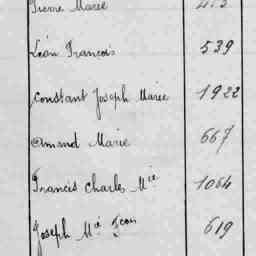 Pierre Marie
Léon François 539
Constant Joseph Marie 1922
Amand Marie 667
Francis Charles Mie 1064
Joseph Mie Jean 619